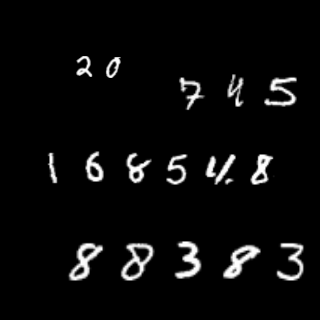 20
745
168548
88383